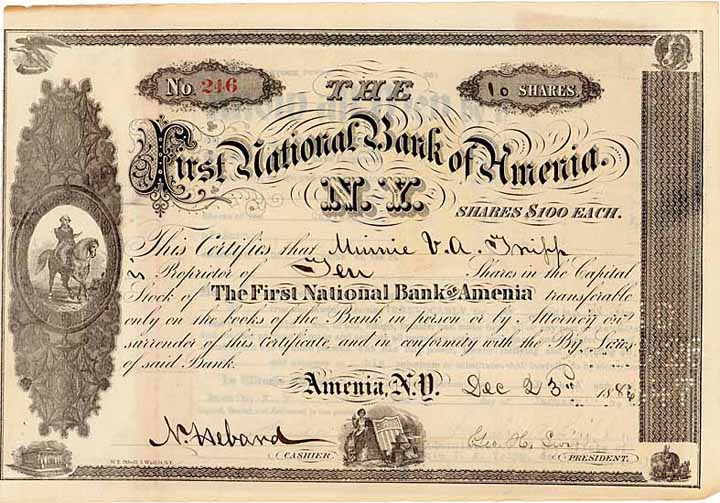 No. 246
THE
10 SHARES.
First National Bank of Amenia.
N.Y.
SHARES $100 EACH.
This Certifies that Minnie V. A. Tripp
is Proprietor of Ten Shares in the Capital
Stock of The First National Bank of Amenia transferable
only on the books of the Bank in person or by Attorney on
surrender of this Certificate, and in conformity with the By Laws
of said Bank.
Amenia, N.Y. Dec 23" 1886
CASHIER.
Geo. H. Swift
PRESIDENT.